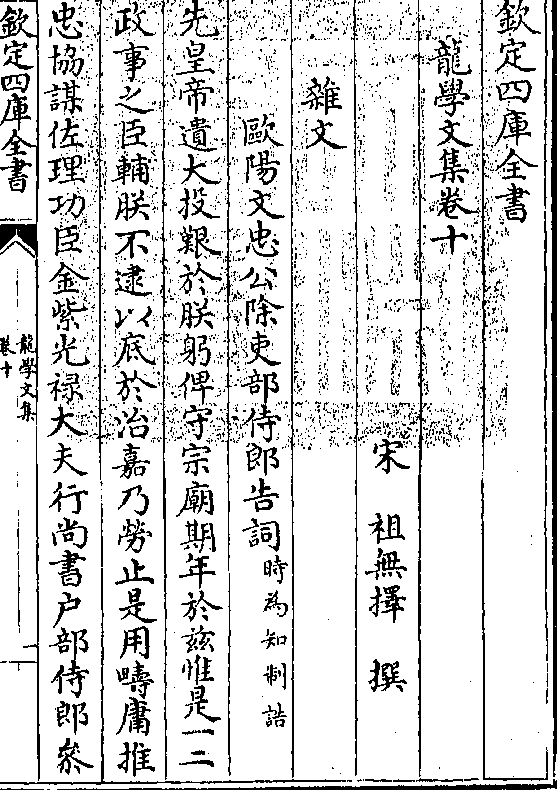 欽定四庫全書
龍學文集卷十
宋 祖無擇 撰
雜文
歐陽文忠公除吏部侍郎告詞時為知制誥
先皇帝遺大投艱於朕躬俾守宗廟期年於兹惟是一二
政事之臣輔朕不逮以底於治嘉乃勞止是用疇庸推
忠協謀佐理功臣金紫光禄大夫行尚書户部侍郎叅
欽定四庫全書
龍學文集
卷十